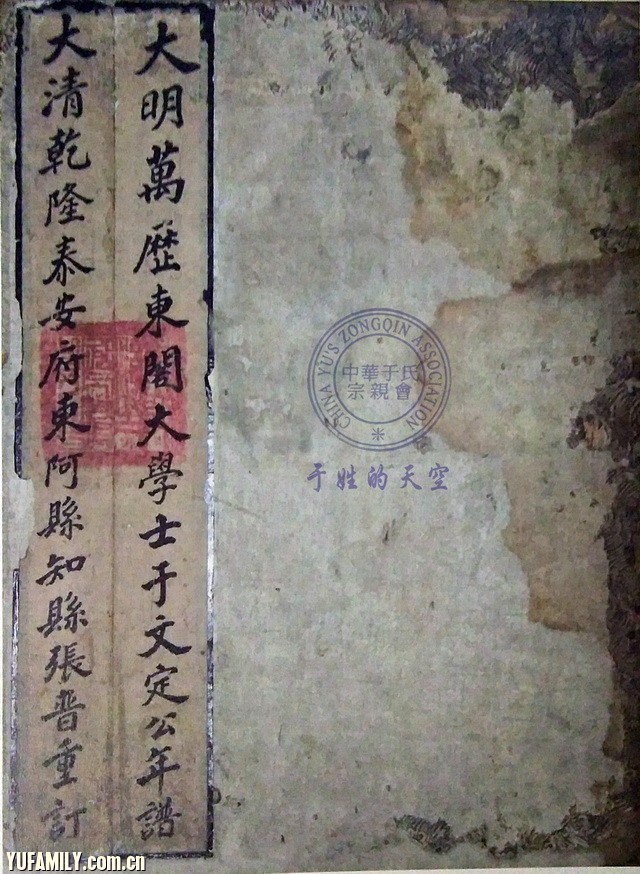 大明萬歷東閣大學士于文定公年譜
大清乾隆泰安府東阿縣知縣張晋重訂
CHINA YU'S ZONGQIN ASSOCIATION
中華于氏
宗親會
于姓的天空
YUFAMILY.com.cn